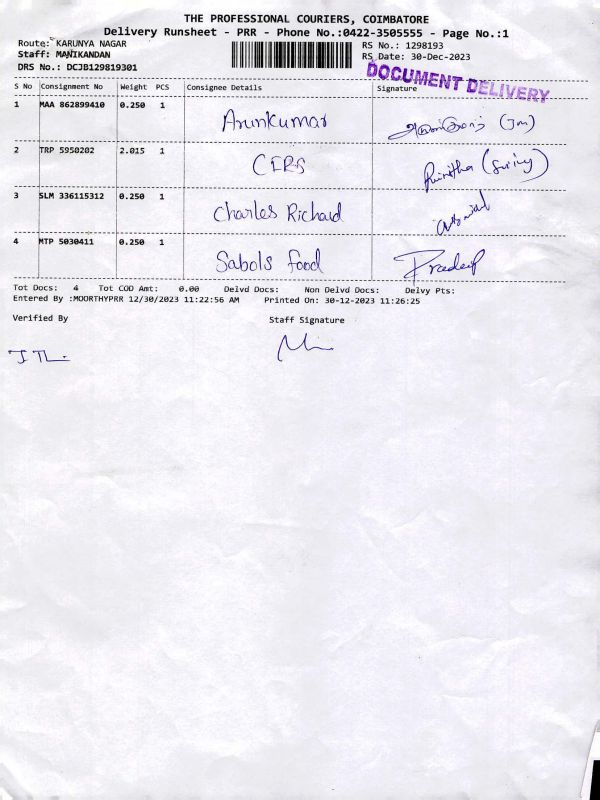 THE PROFESSIONAL COURIERS, COIMBATORE
Delivery Runsheet - PRR - Phone No.:0422-3505555 - Page No.:1
Route: KARUNYA NAGAR
RS No.: 1298193
Staff: MANIKANDAN
RS Date: 30-Dec-2023
DRS No.: DCJB129819301
DOCUMENT DELIVERY
S No Consignment No Weight PCS Consignee Details Signature
1 MAA 862899410 0.250 1 Arunkumar
2 TRP 5950202 2.015 1
3 SLM 336115312 0.250 1 Charles Richard
4 MTP 5030411 0.250 1 Sabols food Pradeep
Tot Docs: 4 Tot COD Amt: 0.00 Delvd Docs: Non Delvd Docs: Delvy Pts:
Entered By :MOORTHYPRR 12/30/2023 11:22:56 AM Printed On: 30-12-2023 11:26:25
Verified By Staff Signature